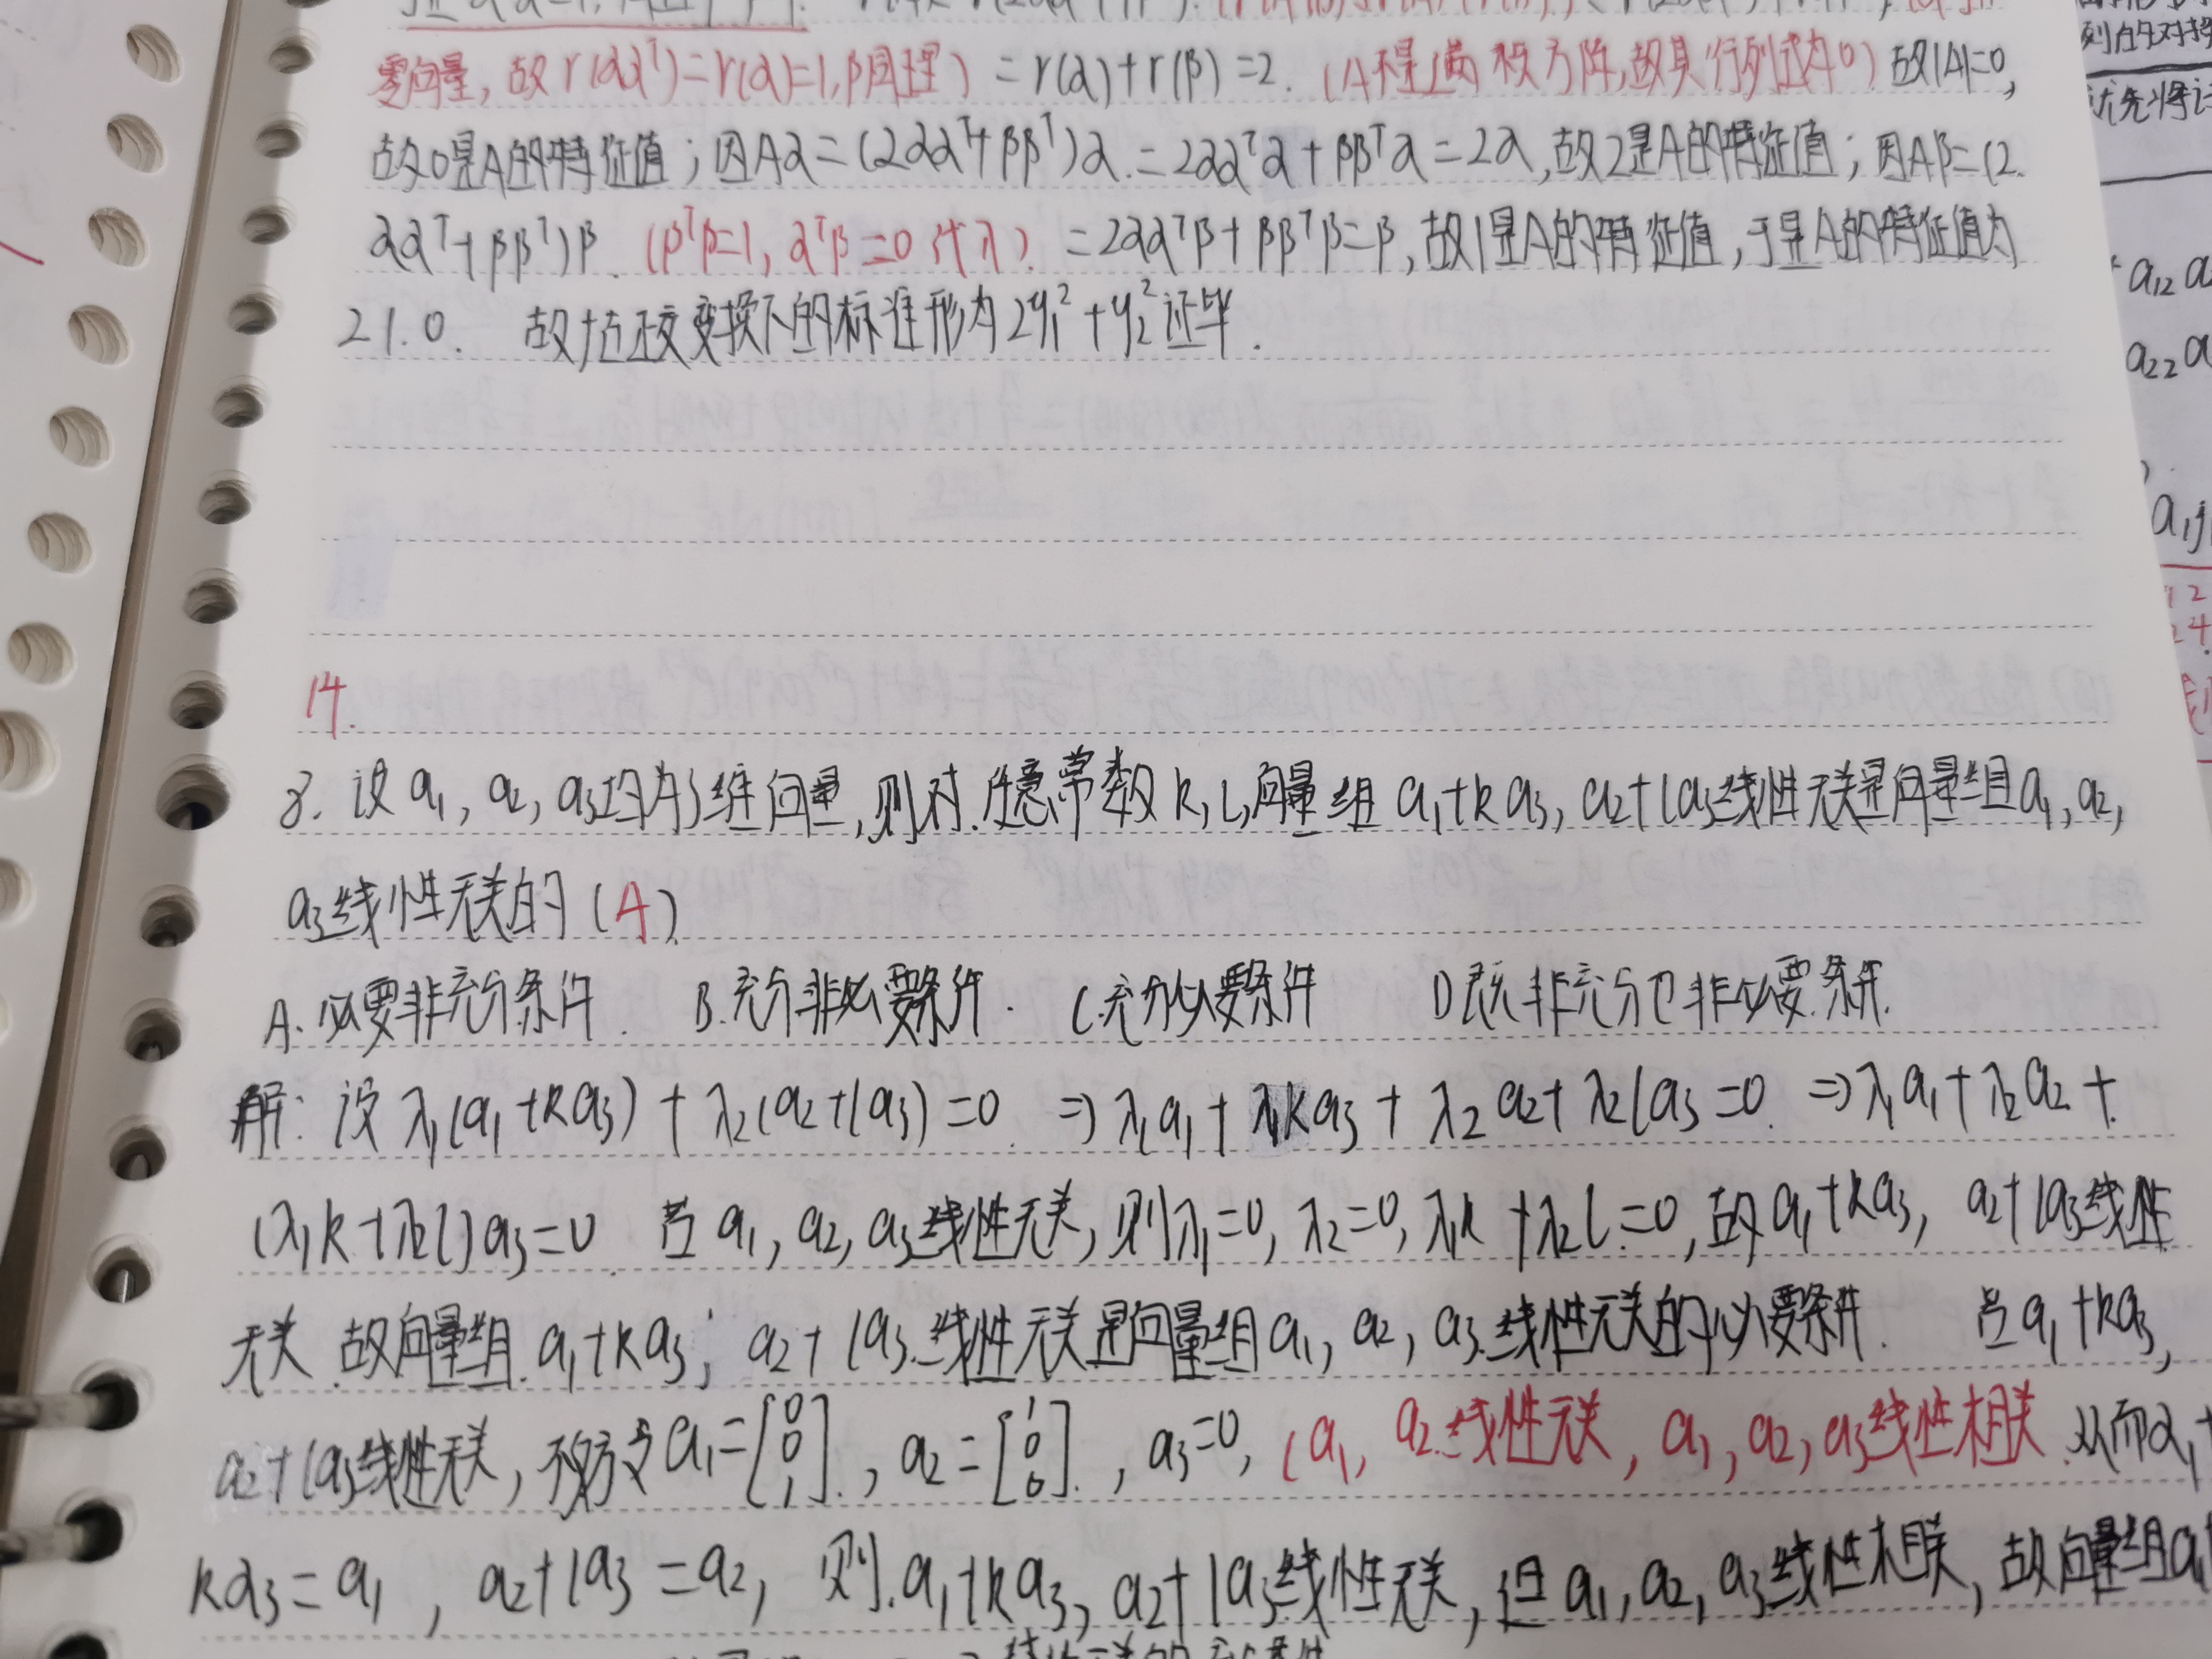 零向量,故r(αα^T)=r(α)=1,β同理) =r(α)+r(β)=2. (A不是满秩方阵,故其行列式为0) 故|A|=0,
故0是A的特征值;因Aα=(2αα^T+ββ^T)α=2αα^Tα+ββ^Tα=2α,故2是A的特征值;因Aβ=(2
αα^T+ββ^T)β (β^Tβ=1, α^Tβ=0代入) =2αα^Tβ+ββ^Tβ=β,故1是A的特征值,于是A的特征值为
2 1. 0. 故f在正交变换下的标准形为2y₁²+y₂²证毕.
14.
8. 设a₁, a₂, a₃均为3维向量,则对任意常数k, l,向量组a₁+ka₃, a₂+la₃线性无关是向量组a₁, a₂,
a₃线性无关的(A)
A. 必要非充分条件. B. 充分非必要条件. C. 充分必要条件 D 既非充分也非必要条件.
解: 设λ₁(a₁+ka₃)+λ₂(a₂+la₃)=0. ⇒λ₁a₁+λ₁ka₃+λ₂a₂+λ₂la₃=0. ⇒λ₁a₁+λ₂a₂+
(λ₁k+λ₂l)a₃=0. 若a₁, a₂, a₃线性无关,则λ₁=0, λ₂=0, λ₁k+λ₂l=0,故a₁+ka₃, a₂+la₃线性
无关.故向量组a₁+ka₃; a₂+la₃线性无关是向量组a₁, a₂, a₃线性无关的必要条件. 若a₁+ka₃,
a₂+la₃线性无关,不妨令a₁=[0 0 1], a₂=[1 0 0], a₃=0, (a₁, a₂线性无关, a₁, a₂, a₃线性相关.从而α₁+
kα₃=a₁, a₂+la₃=a₂, 则a₁+ka₃, a₂+la₃线性无关,但a₁, a₂, a₃线性相关,故向量组a₁
列
a₁₂ a
a₂₂ a
a₁j